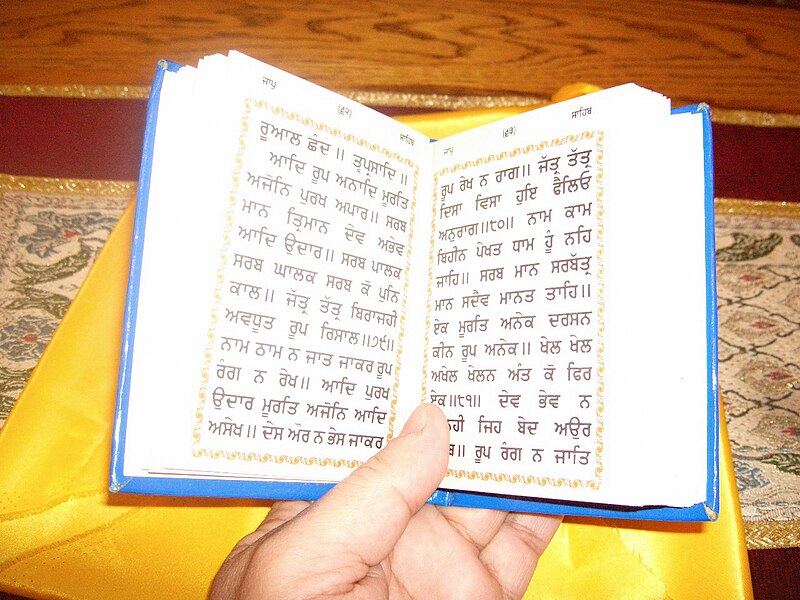 ਜਾਪੁ (੬੨) ਸਾਹਿਬ
ਰੂਆਲ ਛੰਦ ॥ ਤ੍ਵਪ੍ਰਸਾਦਿ ॥
ਆਦਿ ਰੂਪ ਅਨਾਦਿ ਮੂਰਤਿ
ਅਜੋਨਿ ਪੁਰਖ ਅਪਾਰ॥ ਸਰਬ
ਮਾਨ ਤ੍ਰਿਮਾਨ ਦੇਵ ਅਭੇਵ
ਆਦਿ ਉਦਾਰ॥ ਸਰਬ ਪਾਲਕ
ਸਰਬ ਘਾਲਕ ਸਰਬ ਕੋ ਪੁਨਿ
ਕਾਲ॥ ਜੱਤ੍ਰ ਤੱਤ੍ਰ ਬਿਰਾਜਹੀ
ਅਵਧੂਤ ਰੂਪ ਰਿਸਾਲ॥੭੯॥
ਨਾਮ ਠਾਮ ਨ ਜਾਤ ਜਾਕਰ ਰੂਪ
ਰੰਗ ਨ ਰੇਖ॥ ਆਦਿ ਪੁਰਖ
ਉਦਾਰ ਮੂਰਤਿ ਅਜੋਨਿ ਆਦਿ
ਅਸੇਖ॥ ਦੇਸ ਔਰ ਨ ਭੇਸ ਜਾਕਰ
ਜਾਪੁ (੬੩) ਸਾਹਿਬ
ਰੂਪ ਰੇਖ ਨ ਰਾਗ॥ ਜੱਤ੍ਰ ਤੱਤ੍ਰ
ਦਿਸਾ ਵਿਸਾ ਹੁਇ ਫੈਲਿਓ
ਅਨੁਰਾਗ॥੮੦॥ ਨਾਮ ਕਾਮ
ਬਿਹੀਨ ਪੇਖਤ ਧਾਮ ਹੂੰ ਨਹਿ
ਜਾਹਿ॥ ਸਰਬ ਮਾਨ ਸਰਬੱਤ੍ਰ
ਮਾਨ ਸਦੈਵ ਮਾਨਤ ਤਾਹਿ॥
ਏਕ ਮੂਰਤਿ ਅਨੇਕ ਦਰਸਨ
ਕੀਨ ਰੂਪ ਅਨੇਕ॥ ਖੇਲ ਖੇਲ
ਅਖੇਲ ਖੇਲਨ ਅੰਤ ਕੋ ਫਿਰ
ਏਕ॥੮੧॥ ਦੇਵ ਭੇਵ ਨ
ਜਿਹ ਬੇਦ ਅਉਰ
ਰੂਪ ਰੰਗ ਨ ਜਾਤਿ